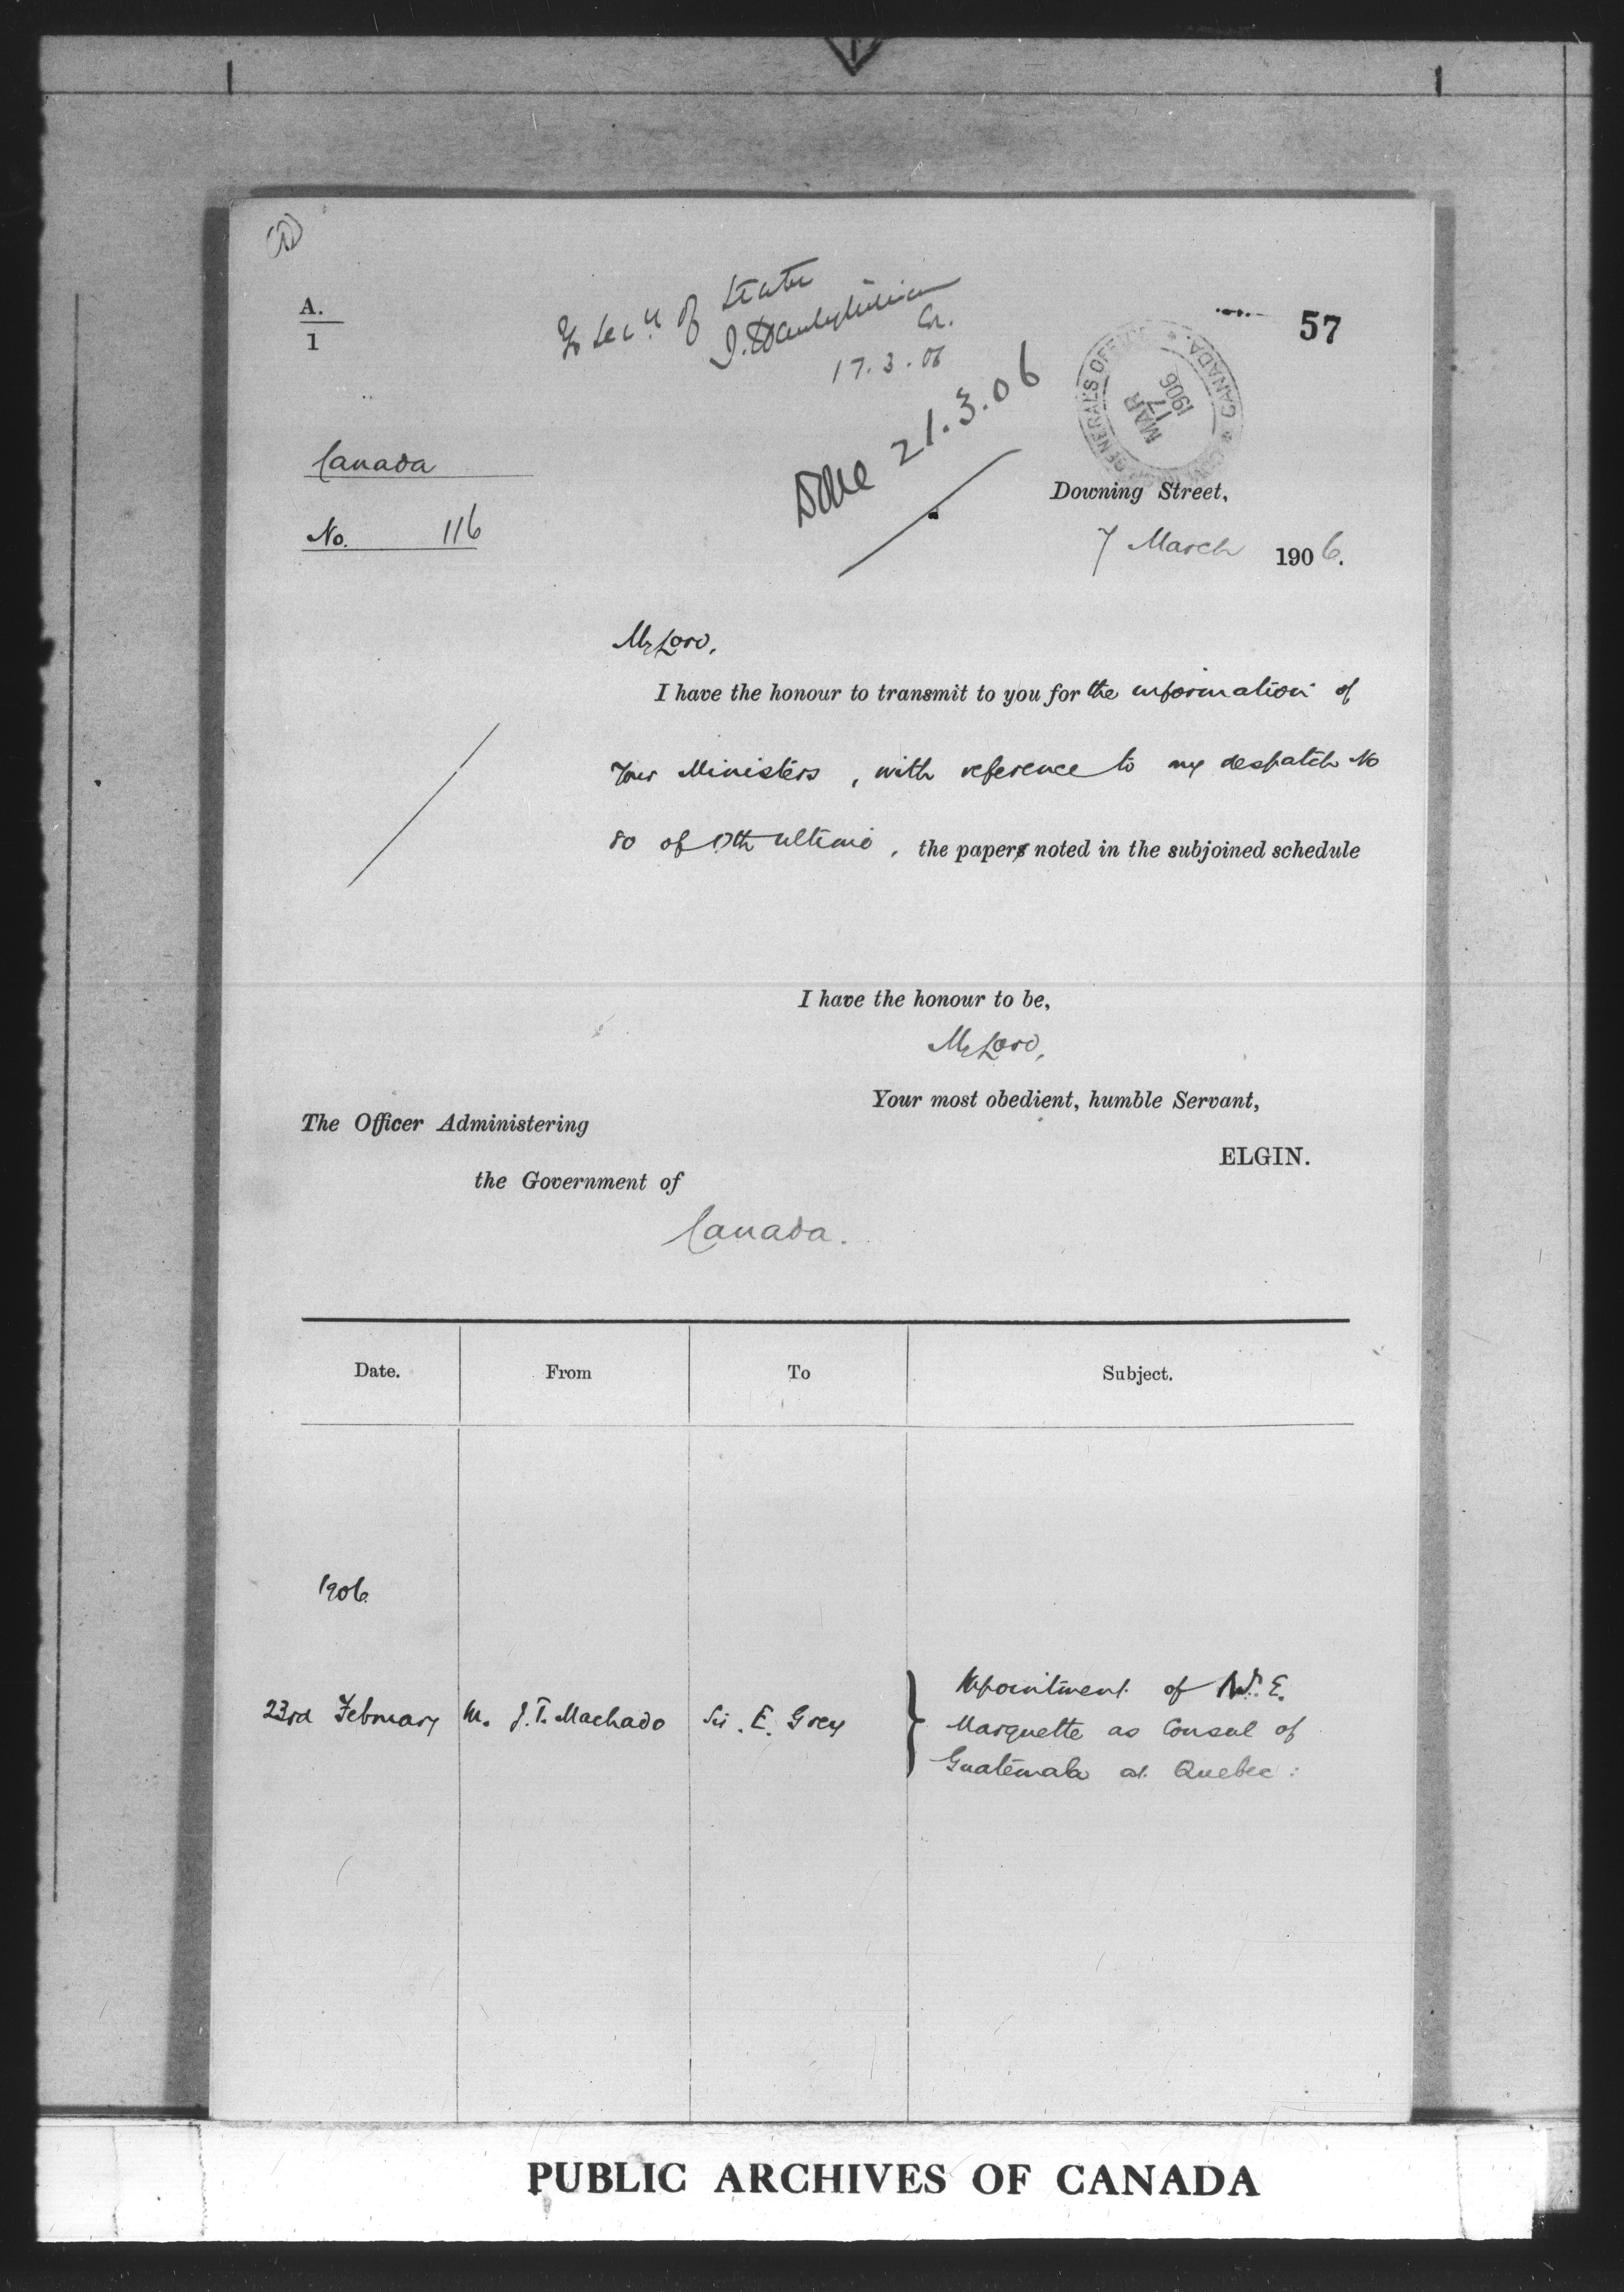 57
A.
1
To Secy of State
17.3.06
Done 21.3.06
GENERAL'S OFFICE * CANADA *
MAR
17
1906
Canada
No. 116
Downing Street,
7 March 1906.
My Lord,
I have the honour to transmit to you for the information of
Your Ministers, with reference to my despatch No
80 of ultimo, the paper noted in the subjoined schedule
I have the honour to be,
My Lord,
Your most obedient, humble Servant,
ELGIN.
The Officer Administering
the Government of
Canada.
Date. From To Subject.
1906
23rd February M. J. T. Machado Sir E. Grey
Appointment of E.
Marquette as Consul of
Guatemala at Quebec:
PUBLIC ARCHIVES OF CANADA